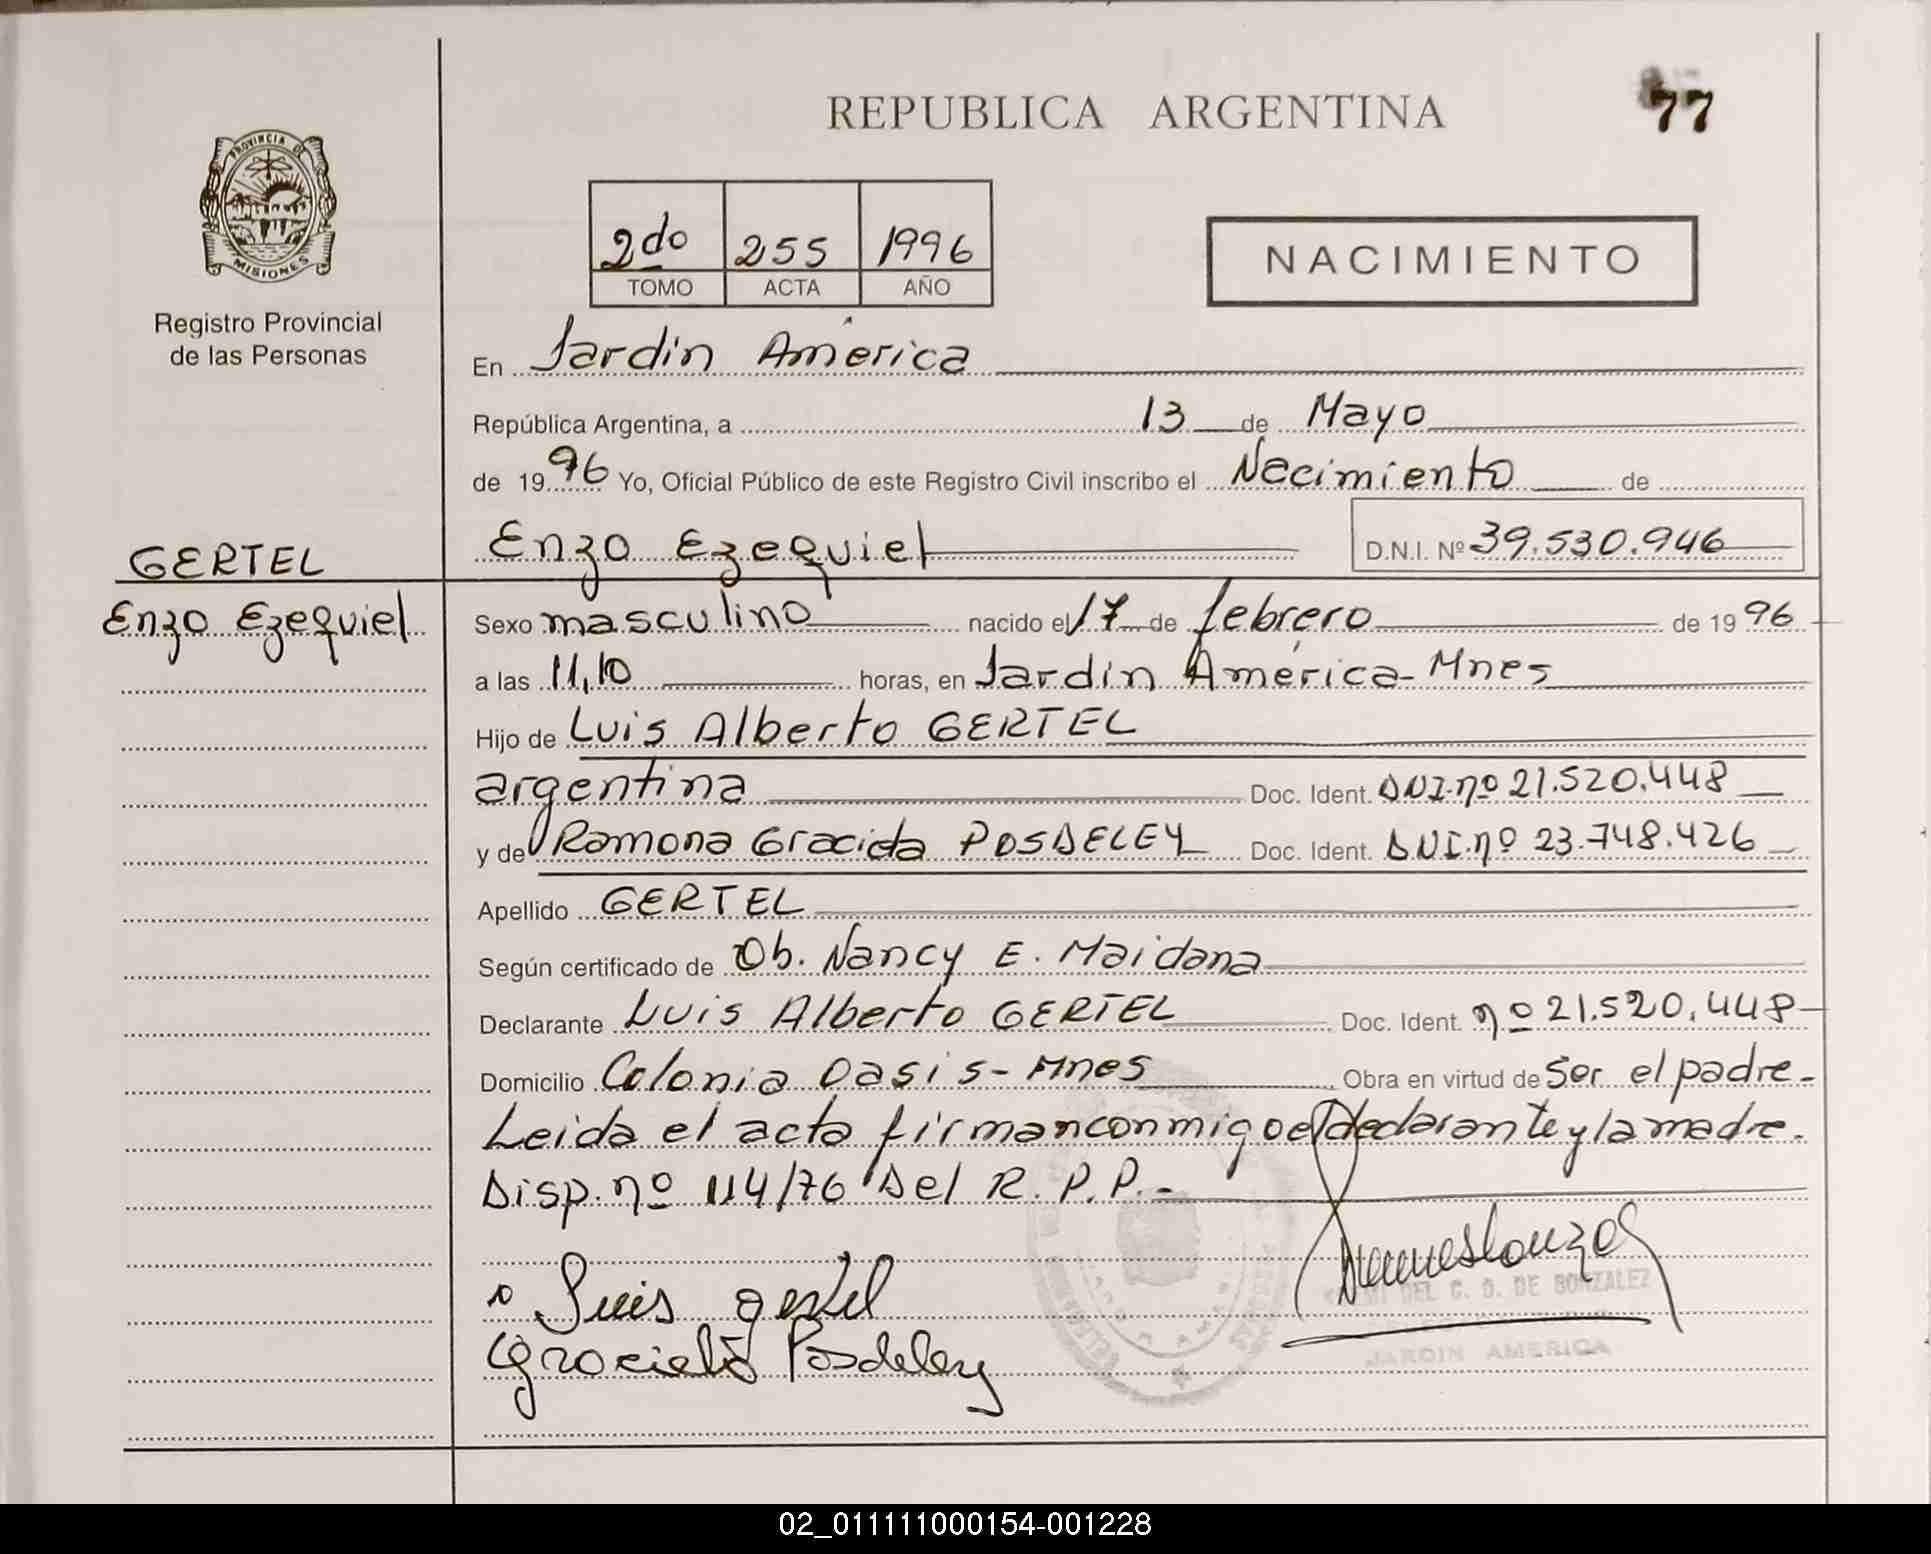 REPUBLICA ARGENTINA
77
PROVINCIA DE
MISIONES
Registro Provincial
de las Personas
2do 255 1996
TOMO ACTA AÑO
NACIMIENTO
En Jardín América
República Argentina, a 13 de Mayo
de 1996 Yo, Oficial Público de este Registro Civil inscribo el Nacimiento de
Enzo Ezequiel D.N.I. Nº 39.530.946
GERTEL
Enzo Ezequiel
Sexo masculino nacido el 17 de febrero de 1996
a las 11,10 horas, en Jardín América - Mnes
Hijo de Luis Alberto GERTEL
argentina Doc. Ident. DNI. nº 21.520.448
y de Ramona Gracida POSDELEY Doc. Ident. DNI. nº 23.748.426
Apellido GERTEL
Según certificado de Ob. Nancy E. Maidana
Declarante Luis Alberto GERTEL Doc. Ident. nº 21.520.448
Domicilio Colonia Oasis - Mnes Obra en virtud de Ser el padre.
Leida el acta firman conmigo el declarante y la madre.
Disp. nº 114/76 Del R. P. P. -
Luis gertel
Graciela Posdeley
DEL C. D. DE GONZALEZ
JARDIN AMERICA
02_011111000154-001228